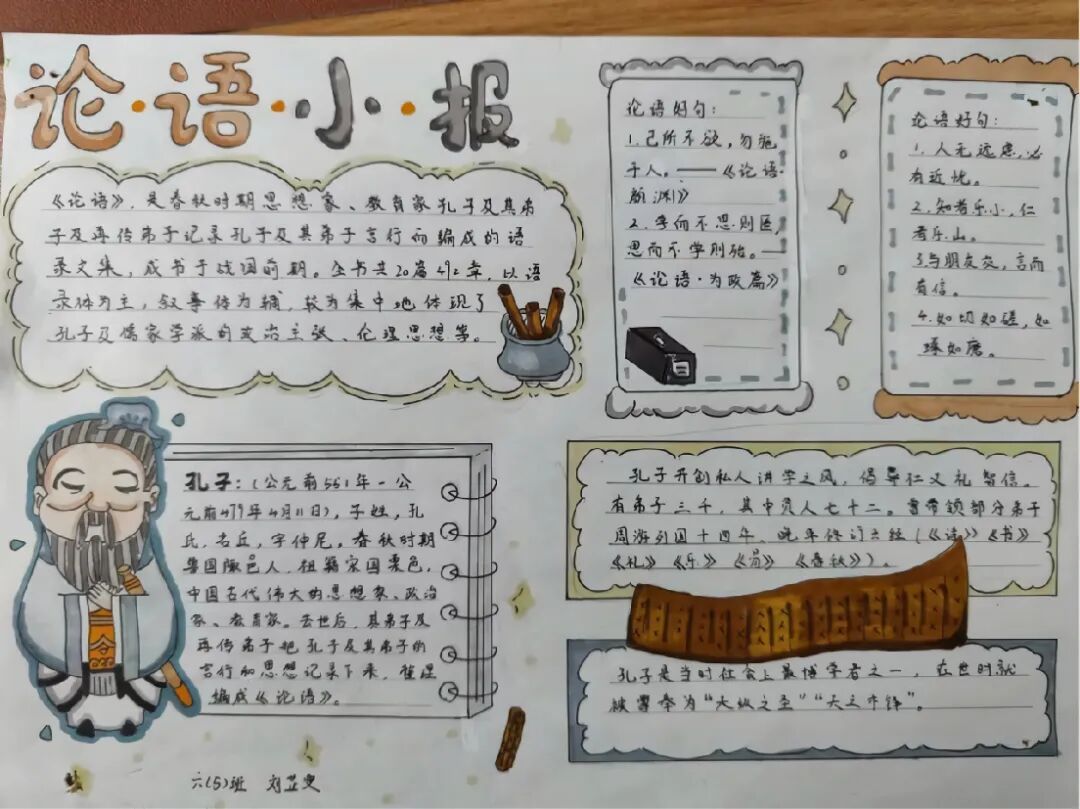 论·语·小·报
《论语》，是春秋时期思想家、教育家孔子及其弟
子及再传弟子记录孔子及其弟子言行而编成的语
录文集，成书于战国前期。全书共20篇492章，以语
录体为主，叙事体为辅，较为集中地体现了
孔子及儒家学派的政治主张、伦理思想等。
论语好句：
1.己所不欲，勿施
于人。——《论语·
颜渊》
2.学而不思则罔，
思而不学则殆。—
《论语·为政篇》
论语好句：
1.人无远虑，必
有近忧。
2.知者乐小，仁
者乐山。
3与朋友交，言而
有信。
4.如切如磋，如
琢如磨。
孔子：（公元前551年－公
元前479年4月11日），子姓，孔
氏，名丘，字仲尼。春秋时期
鲁国陬邑人，祖籍宋国栗邑，
中国古代伟大的思想家、政治
家、教育家。去世后，其弟子及
再传弟子把孔子及其弟子的
言行和思想记录下来，整理
编成《论语》。
孔子开创私人讲学之风，倡导仁义礼智信。
有弟子三千，其中贤人七十二。曾带领部分弟子
周游列国十四年，晚年修订六经（《诗》《书》
《礼》《乐》《易》《春秋》）。
孔子是当时社会上最博学者之一，在世时就
被尊奉为“天纵之圣”“天之木铎”。
六(5)班 刘芷